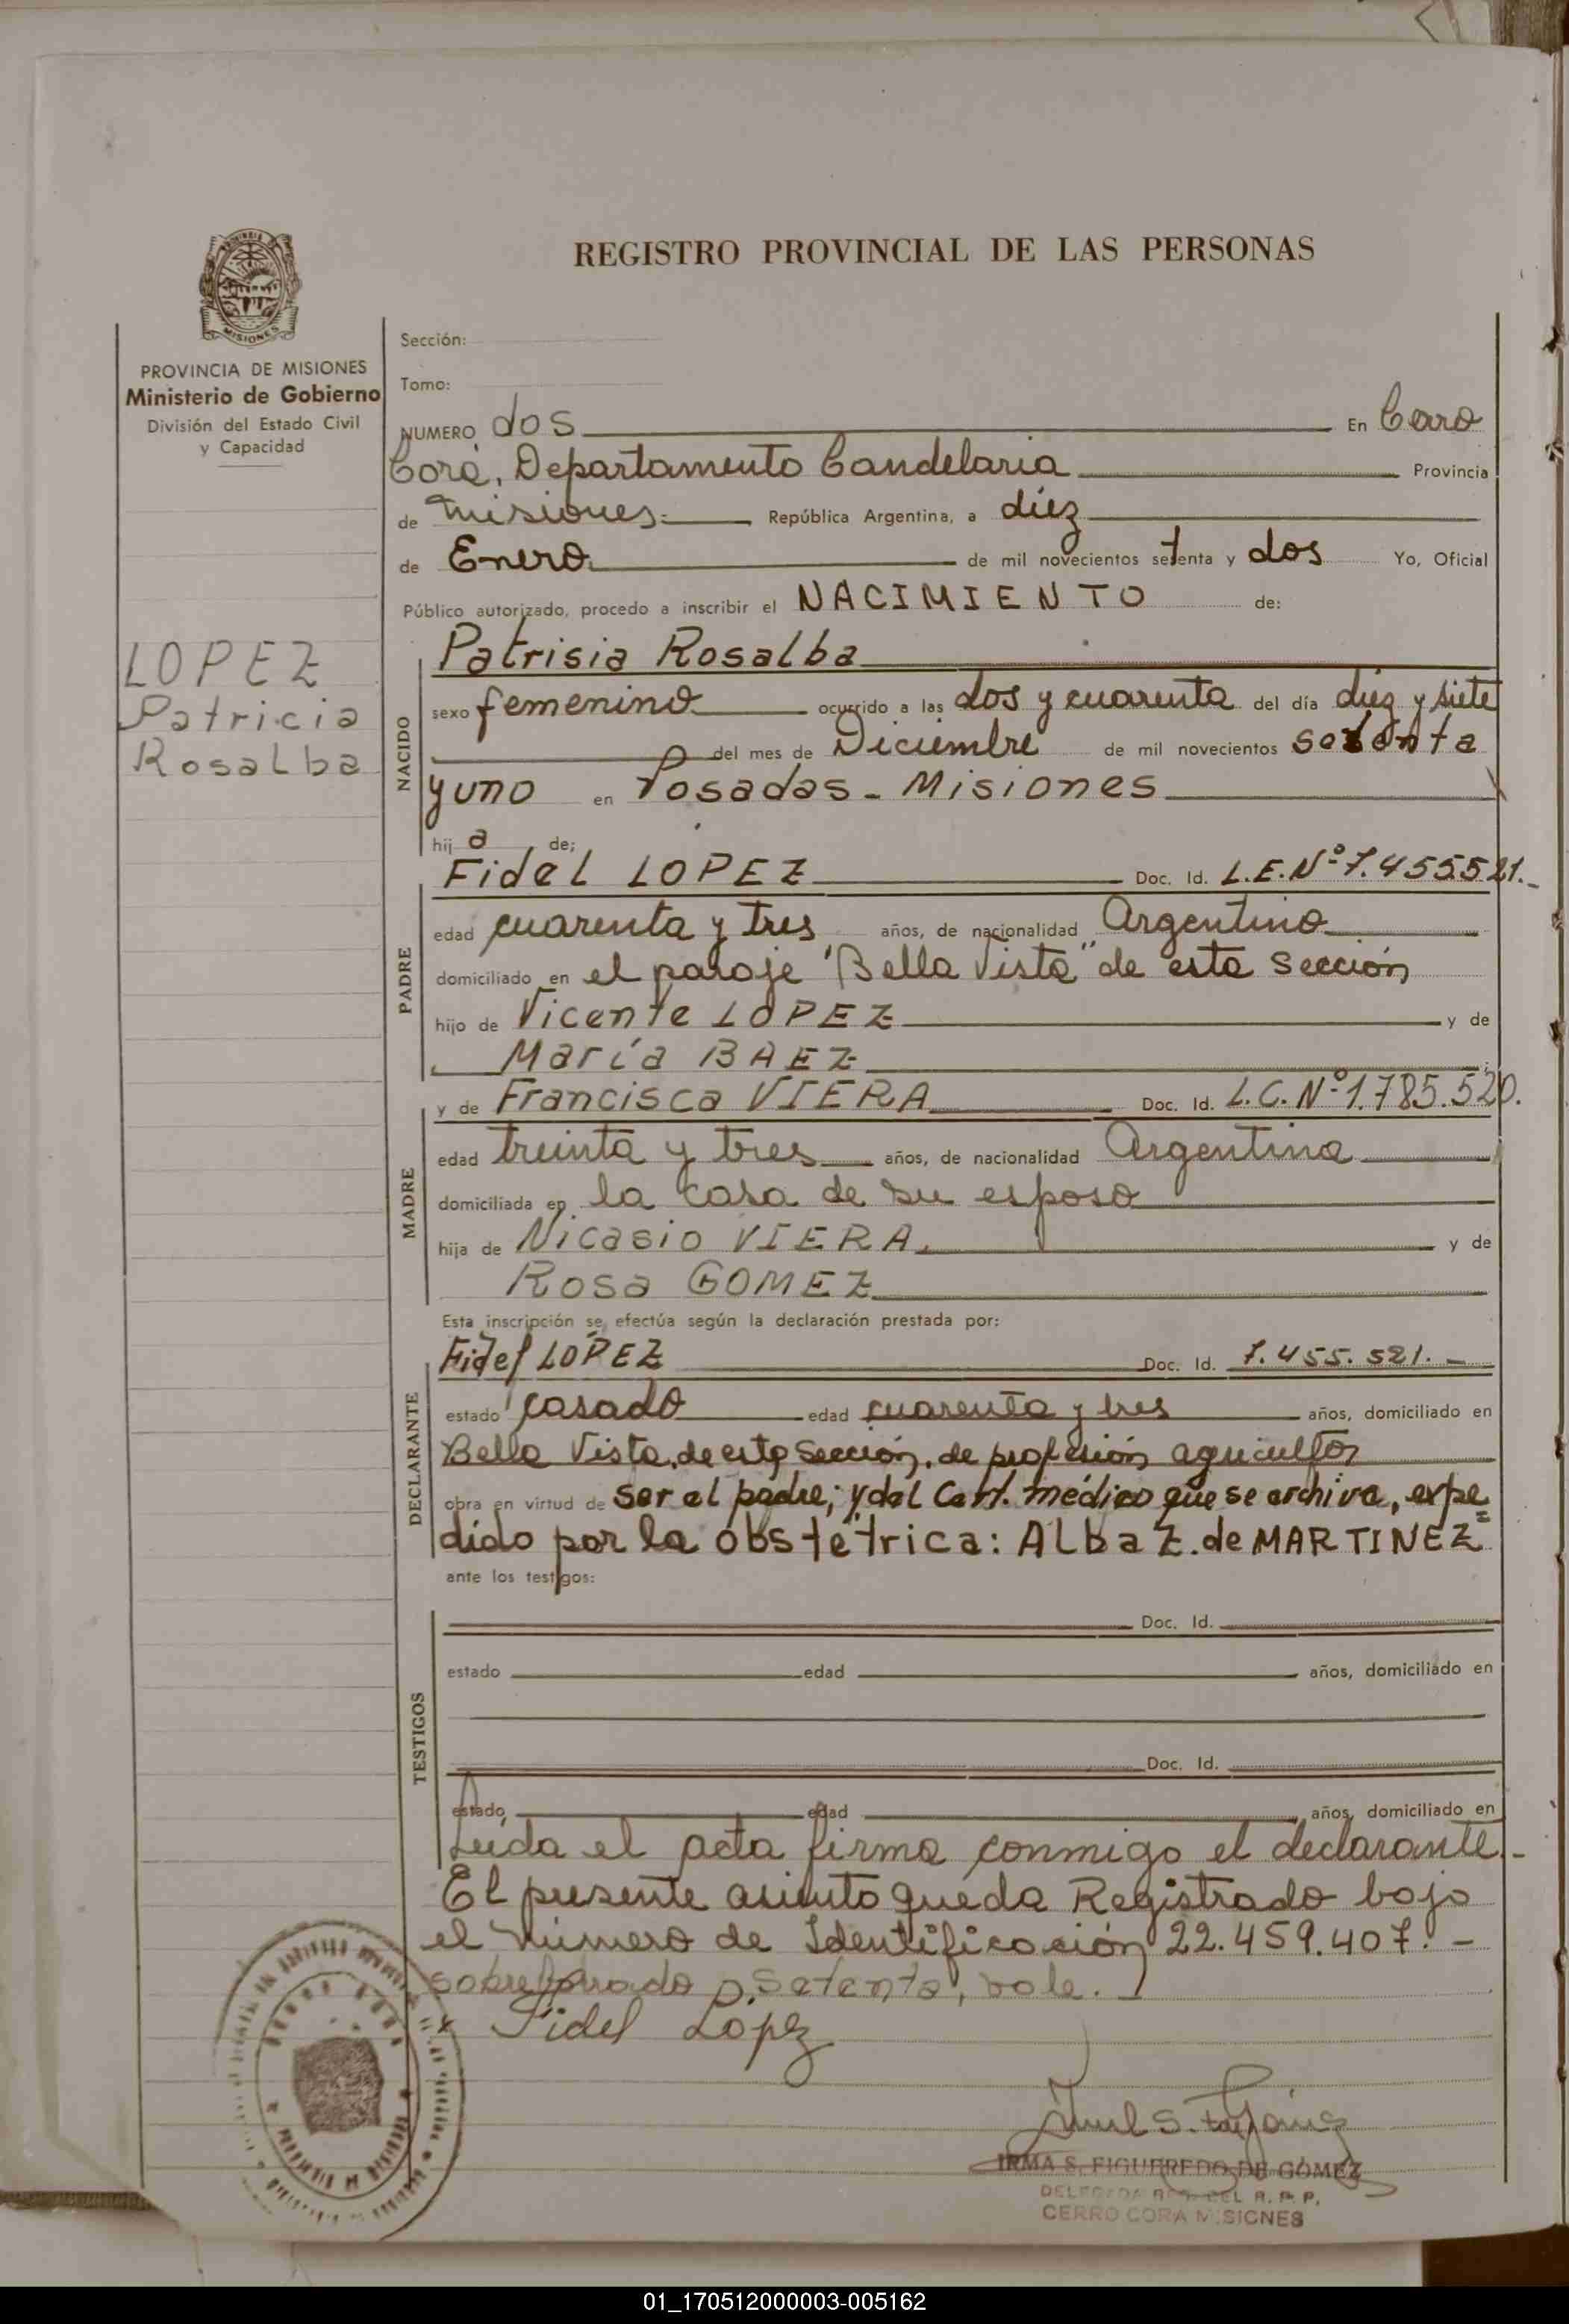 REGISTRO PROVINCIAL DE LAS PERSONAS
PROVINCIA DE MISIONES
Ministerio de Gobierno
División del Estado Civil
y Capacidad
LOPEZ
Patricia
Rosalba
Sección:
Tomo:
NUMERO dos En Cerro
Corá, Departamento Candelaria Provincia
de Misiones.- República Argentina, a diez
de Enero de mil novecientos setenta y dos Yo, Oficial
Público autorizado, procedo a inscribir el NACIMIENTO de:
NACIDO
Patrisia Rosalba
sexo femenino ocurrido a las dos y cuarenta del día diez y siete
del mes de Diciembre de mil novecientos setenta
y uno en Posadas - Misiones
hij a de;
PADRE
Fidel LOPEZ Doc. Id. L.E.Nº 7.455.521.-
edad cuarenta y tres años, de nacionalidad Argentino
domiciliado en el paraje "Bella Vista" de esta sección
hijo de Vicente LOPEZ y de
María BAEZ
MADRE
y de Francisca VIERA Doc. Id. L.C.Nº 1.785.520.
edad treinta y tres años, de nacionalidad Argentina
domiciliada en la casa de su esposo
hija de Nicasio VIERA. y de
Rosa GOMEZ
Esta inscripción se efectúa según la declaración prestada por:
DECLARANTE
Fidel LOPEZ Doc. Id. 7.455.521.-
estado casado edad cuarenta y tres años, domiciliado en
Bella Vista, de esta sección, de profesión agricultor
obra en virtud de ser el padre; y del Cert. médico que se archiva, expe
dido por la obstétrica: Alba Z. de MARTINEZ
ante los testigos:
TESTIGOS
Doc. Id.
estado edad años, domiciliado en
Doc. Id.
estado edad años, domiciliado en
Leída el acta firma conmigo el declarante.-
El presente asiento queda Registrado bajo
el número de Identificación 22.459.407.-
sobreborrado setenta, vale.
Fidel López
IRMA S. FIGUEREDO DE GOMEZ
DELEGADA DEL R. P. P.
CERRO CORA MISIONES
01_170512000003-005162